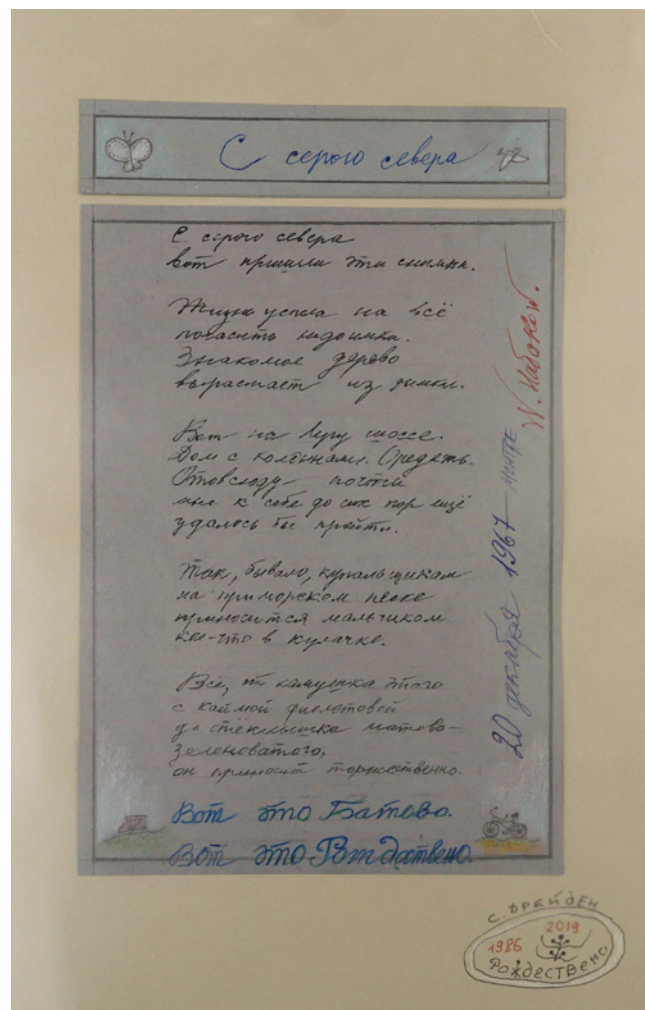 С серого севера
С серого севера
вот пришли эти снимки.
Жизнь успела не всё
погасить недоимки.
Знакомое дерево
вырастает из дымки.
Вот на Лугу шоссе.
Дом с колоннами. Оредежь.
Отовсюду почти
мне к себе до сих пор ещё
удалось бы пройти.
Так, бывало, купальщикам
на приморском песке
приносится мальчиком
кое-что в кулачке.
Всё, от камушка этого
с каймой фиолетовой
до стёклышка матово-
зеленоватого,
он приносит торжественно.
Вот это Батово.
Вот это Рождествено.
20 декабря 1967 Монтре
W. Набоков.
С. ДРЕЙДЕН
1986 2019
РОЖДЕСТВЕНО